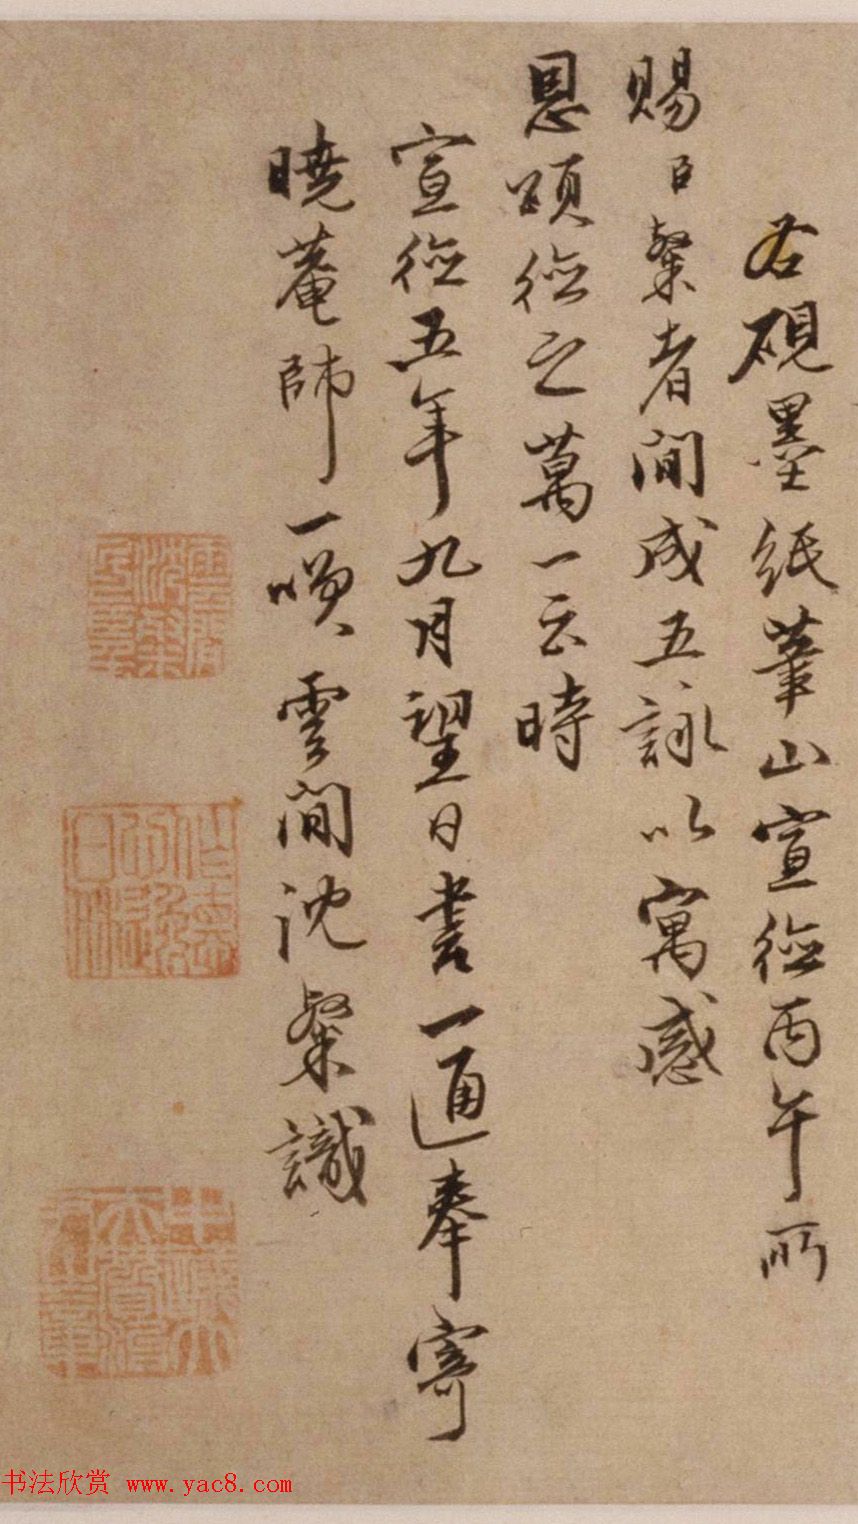 右硯墨紙筆山宣德丙午所
賜臣粲者間成五詠以寓感
恩頌德之萬一云時
宣德五年九月望日書一通奉寄
曉菴師一雲間沈粲識
作德心逸日休
书法欣赏 www.yac8.com